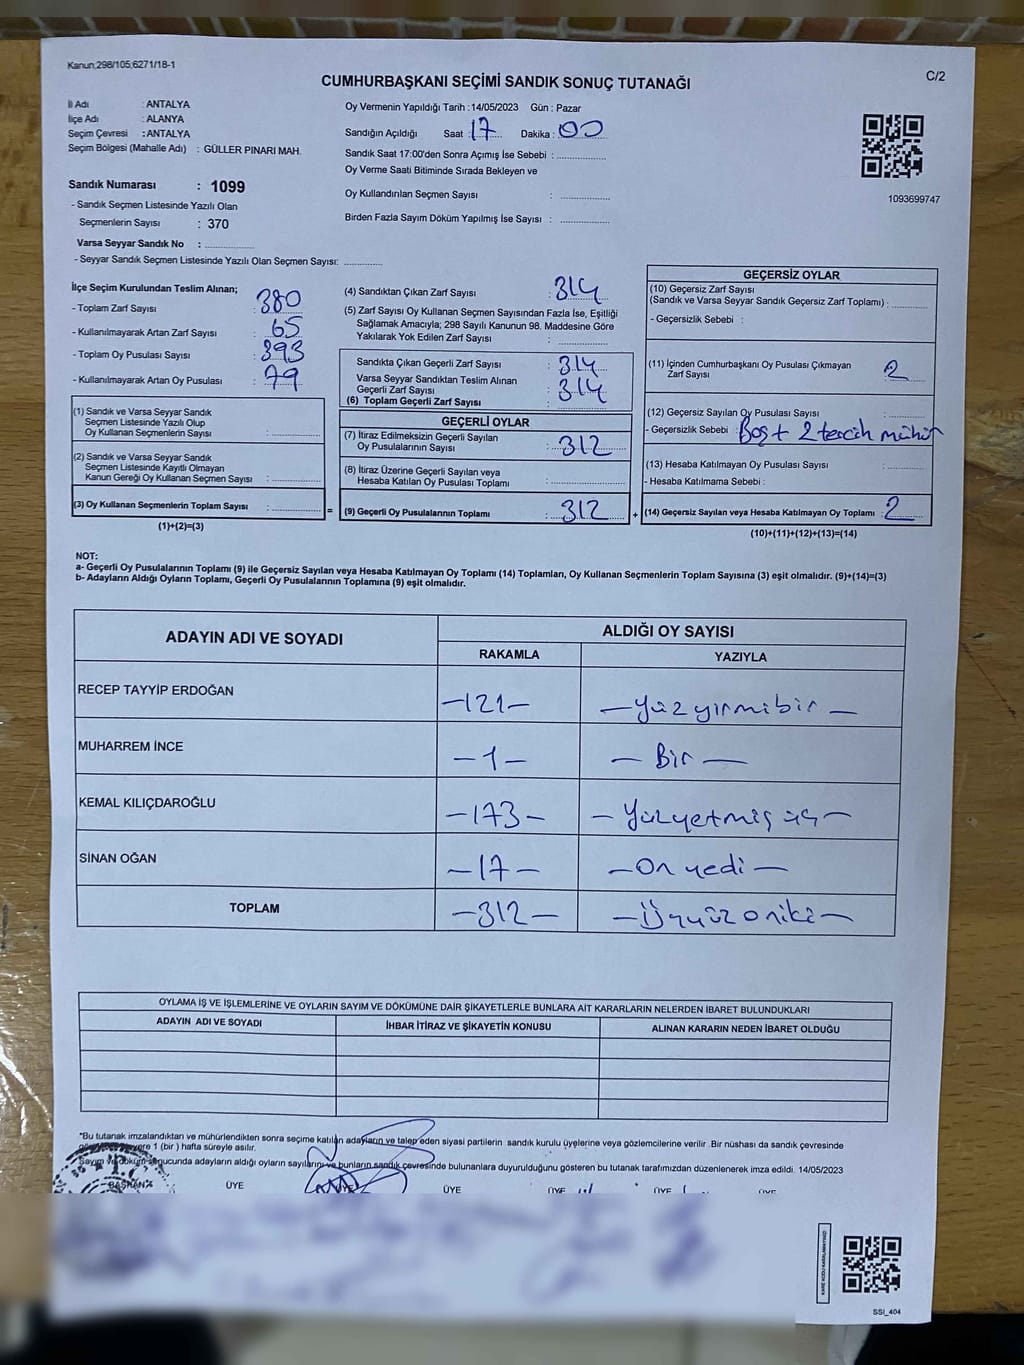 Kanun;298/105;6271/18-1
C/2
CUMHURBAŞKANI SEÇİMİ SANDIK SONUÇ TUTANAĞI
İl Adı : ANTALYA
İlçe Adı : ALANYA
Seçim Çevresi : ANTALYA
Seçim Bölgesi (Mahalle Adı) : GÜLLER PINARI MAH.
Sandık Numarası : 1099
- Sandık Seçmen Listesinde Yazılı Olan
Seçmenlerin Sayısı : 370
Varsa Seyyar Sandık No :
- Seyyar Sandık Seçmen Listesinde Yazılı Olan Seçmen Sayısı:
Oy Vermenin Yapıldığı Tarih :14/05/2023 Gün : Pazar
Sandığın Açıldığı Saat : 17 Dakika : 00
Sandık Saat 17:00'den Sonra Açımış İse Sebebi :
Oy Verme Saati Bitiminde Sırada Bekleyen ve
Oy Kullandırılan Seçmen Sayısı :
Birden Fazla Sayım Döküm Yapılmış İse Sayısı :
1093699747
İlçe Seçim Kurulundan Teslim Alınan;
- Toplam Zarf Sayısı : 380
- Kullanılmayarak Artan Zarf Sayısı : 65
- Toplam Oy Pusulası Sayısı : 393
- Kullanılmayarak Artan Oy Pusulası : 79
(1) Sandık ve Varsa Seyyar Sandık
Seçmen Listesinde Yazılı Olup
Oy Kullanan Seçmenlerin Sayısı :
(2) Sandık ve Varsa Seyyar Sandık
Seçmen Listesinde Kayıtlı Olmayan
Kanun Gereği Oy Kullanan Seçmen Sayısı :
(3) Oy Kullanan Seçmenlerin Toplam Sayısı :
(1)+(2)=(3)
=
(4) Sandıktan Çıkan Zarf Sayısı : 314
(5) Zarf Sayısı Oy Kullanan Seçmen Sayısından Fazla İse, Eşitliği
Sağlamak Amacıyla; 298 Sayılı Kanunun 98. Maddesine Göre
Yakılarak Yok Edilen Zarf Sayısı :
Sandıkta Çıkan Geçerli Zarf Sayısı : 314
Varsa Seyyar Sandıktan Teslim Alınan
Geçerli Zarf Sayısı : 314
(6) Toplam Geçerli Zarf Sayısı :
GEÇERLİ OYLAR
(7) İtiraz Edilmeksizin Geçerli Sayılan
Oy Pusulalarının Sayısı : 312
(8) İtiraz Üzerine Geçerli Sayılan veya
Hesaba Katılan Oy Pusulası Toplamı :
(9) Geçerli Oy Pusulalarının Toplamı : 312
+
GEÇERSİZ OYLAR
(10) Geçersiz Zarf Sayısı
(Sandık ve Varsa Seyyar Sandık Geçersiz Zarf Toplamı) :
- Geçersizlik Sebebi :
(11) İçinden Cumhurbaşkanı Oy Pusulası Çıkmayan
Zarf Sayısı : 2
(12) Geçersiz Sayılan Oy Pusulası Sayısı :
- Geçersizlik Sebebi : Boş + 2 tercih mühür
(13) Hesaba Katılmayan Oy Pusulası Sayısı :
- Hesaba Katılmama Sebebi :
(14) Geçersiz Sayılan veya Hesaba Katılmayan Oy Toplamı : 2
(10)+(11)+(12)+(13)=(14)
NOT:
a- Geçerli Oy Pusulalarının Toplamı (9) ile Geçersiz Sayılan veya Hesaba Katılmayan Oy Toplamı (14) Toplamları, Oy Kullanan Seçmenlerin Toplam Sayısına (3) eşit olmalıdır. (9)+(14)=(3)
b- Adayların Aldığı Oyların Toplamı, Geçerli Oy Pusulalarının Toplamına (9) eşit olmalıdır.
ADAYIN ADI VE SOYADI ALDIĞI OY SAYISI
RAKAMLA YAZIYLA
RECEP TAYYİP ERDOĞAN -121- - Yüz yirmi bir -
MUHARREM İNCE -1- - Bir -
KEMAL KILIÇDAROĞLU -173- - Yüzyetmiş üç -
SİNAN OĞAN -17- - On yedi -
TOPLAM -312- - Üçyüz oniki -
OYLAMA İŞ VE İŞLEMLERİNE VE OYLARIN SAYIM VE DÖKÜMÜNE DAİR ŞİKAYETLERLE BUNLARA AİT KARARLARIN NELERDEN İBARET BULUNDUKLARI
ADAYIN ADI VE SOYADI İHBAR İTİRAZ VE ŞİKAYETİN KONUSU ALINAN KARARIN NEDEN İBARET OLDUĞU
*Bu tutanak imzalandıktan ve mühürlendikten sonra seçime katılan adayların ve talep eden siyasi partilerin sandık kurulu üyelerine veya gözlemcilerine verilir. Bir nüshası da sandık çevresinde
yere 1 (bir ) hafta süreyle asılır.
Sayım ve döküm sonucunda adayların aldığı oyların sayılarını ve bunların sandık çevresinde bulunanlara duyurulduğunu gösteren bu tutanak tarafımızdan düzenlenerek imza edildi. 14/05/2023
BAŞKAN ÜYE ÜYE ÜYE ÜYE ÜYE
SSİ_404